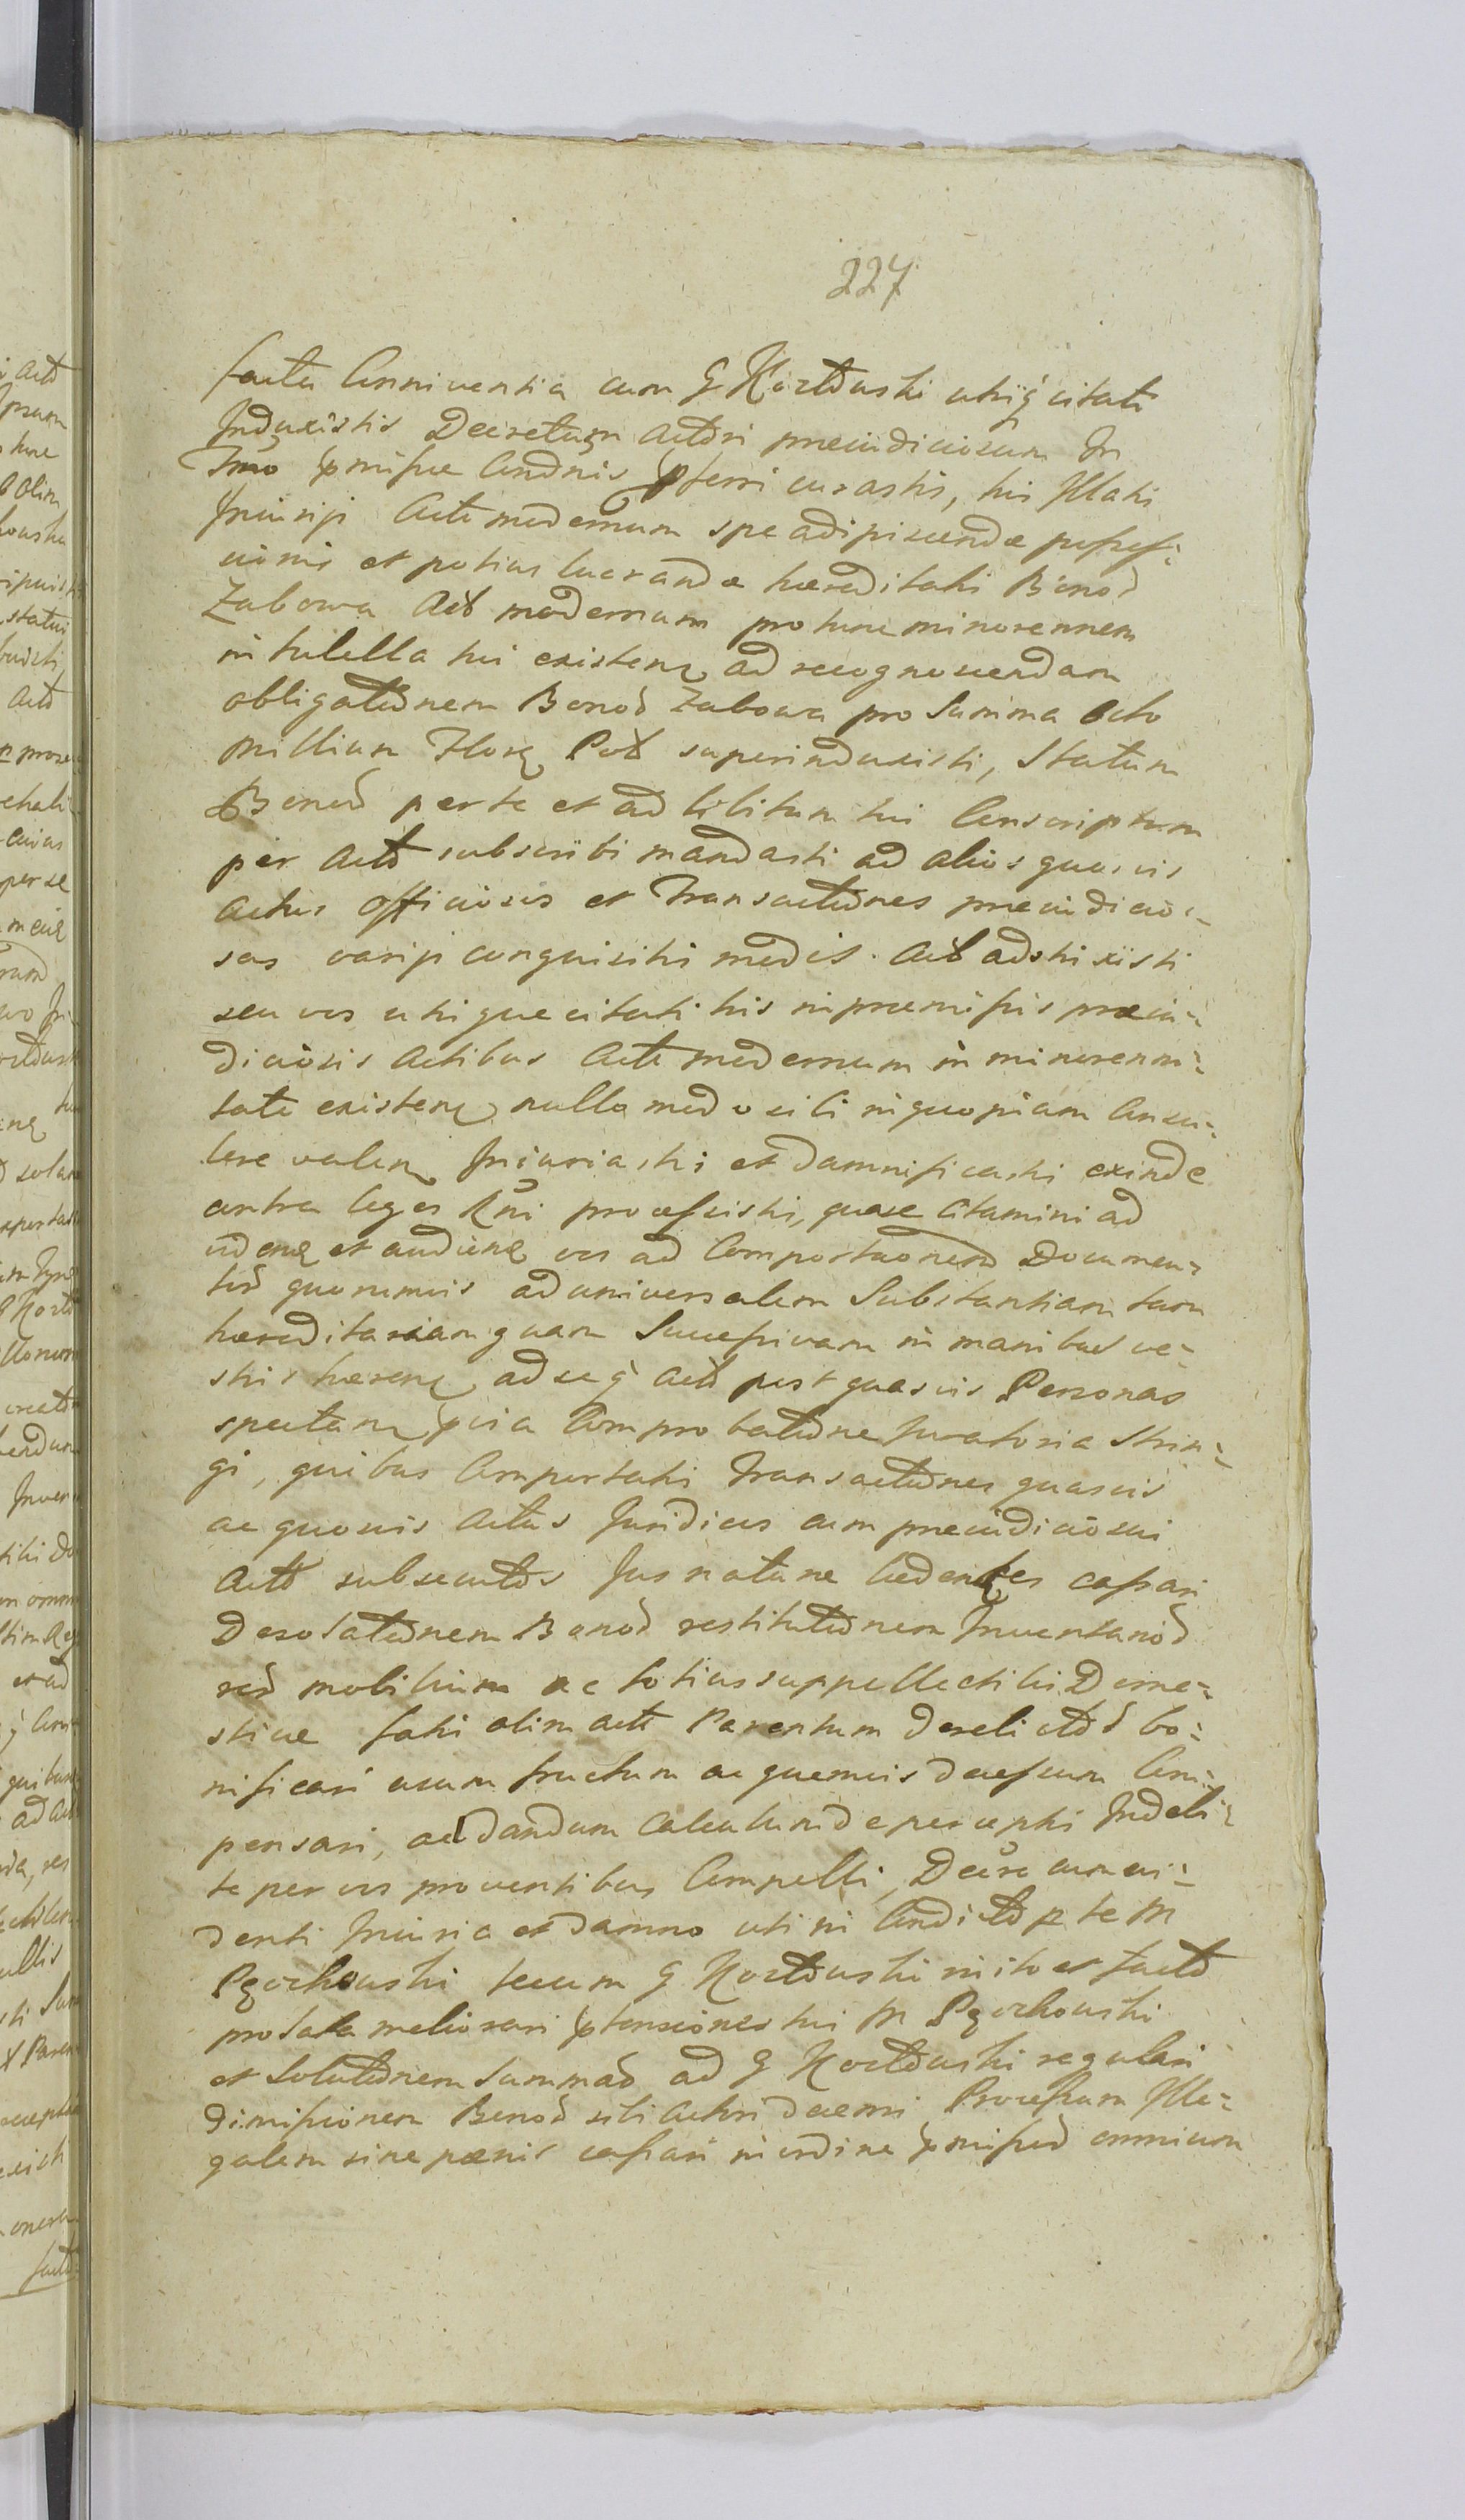 227
facta Conniventia cum G Kortowski utiq citati
Induxistis Decretum Actori praeiudiciosum In
Imo pmissae Condnis pferri curastis, his Illatis
Iniurijs Acte modernum spe adipiscendae posses-
sionis et potius lucrandae haereditatis Bonoȓ
Zabowa Act modernum pro tunc minorennem
in tutella tui existenȩ ad recognoscendam
obligationem Bonoȓ Zabowa pro Summa Octo
Millium Florȩ Pol superinduxisti, Statum
Bonoȓ per te et ad libitum tui Conscriptum
per Acto subscribi mandasti ad alios quosvis
Actus Officiosos et Transactiones praeiudicio-
sas varijs conquisitis modis Act adstrixisti
seu vos utique citati his in praemissis praeiu-
diciosis Actibus Acte modernum in minorenni-
tate existenȩ nullo modo sibi in quopiam Consu-
lere valenȩ Iniuriastis et damnificastis exinde
contra leges Rni processistis, quare Citamini ad
videnȩ et audienȩ vos ad Comportaonem Documen-
toȓ quorumvis ad universalem Substantiam tam
haereditariam quam Successivam in manibus ve-
stris haerenȩ ad seq Act post quasvis Personas
spectanȩ pvia Comprobatione Iuratoria Strin-
gi, quibus Comportatis Transactiones quasvis
ac quosvis Actus Iuridicos cum praeiudicio sui
Acto subsecutos Jus naturae laedentes cassari
Desolationem Bonoȓ restitutionem Inventarioȓ
reȓ mobilium ac totius suppellectilis Dome-
sticae fatis olim Acte Parentum derelictoȓ bo-
nificari usum fructum ac quemvis decessum Com-
pensari, ad dandum Calculum de perceptis Indebi-
te per vos proventibus Compelli, Decre cum evi-
denti Iniuria et damno uti in Condicto p te M
Pęochowski tecum G Kortowski inito et facto
prolata meliorari ptensiones tui M Pęochowski
et Solutionem Summaȓ ad G Kortowski regulari
dimissionem Bonoȓ sibi Actori decerni Processum Ille-
galem sine paenis cassari in ordine pmissoȓ omnium